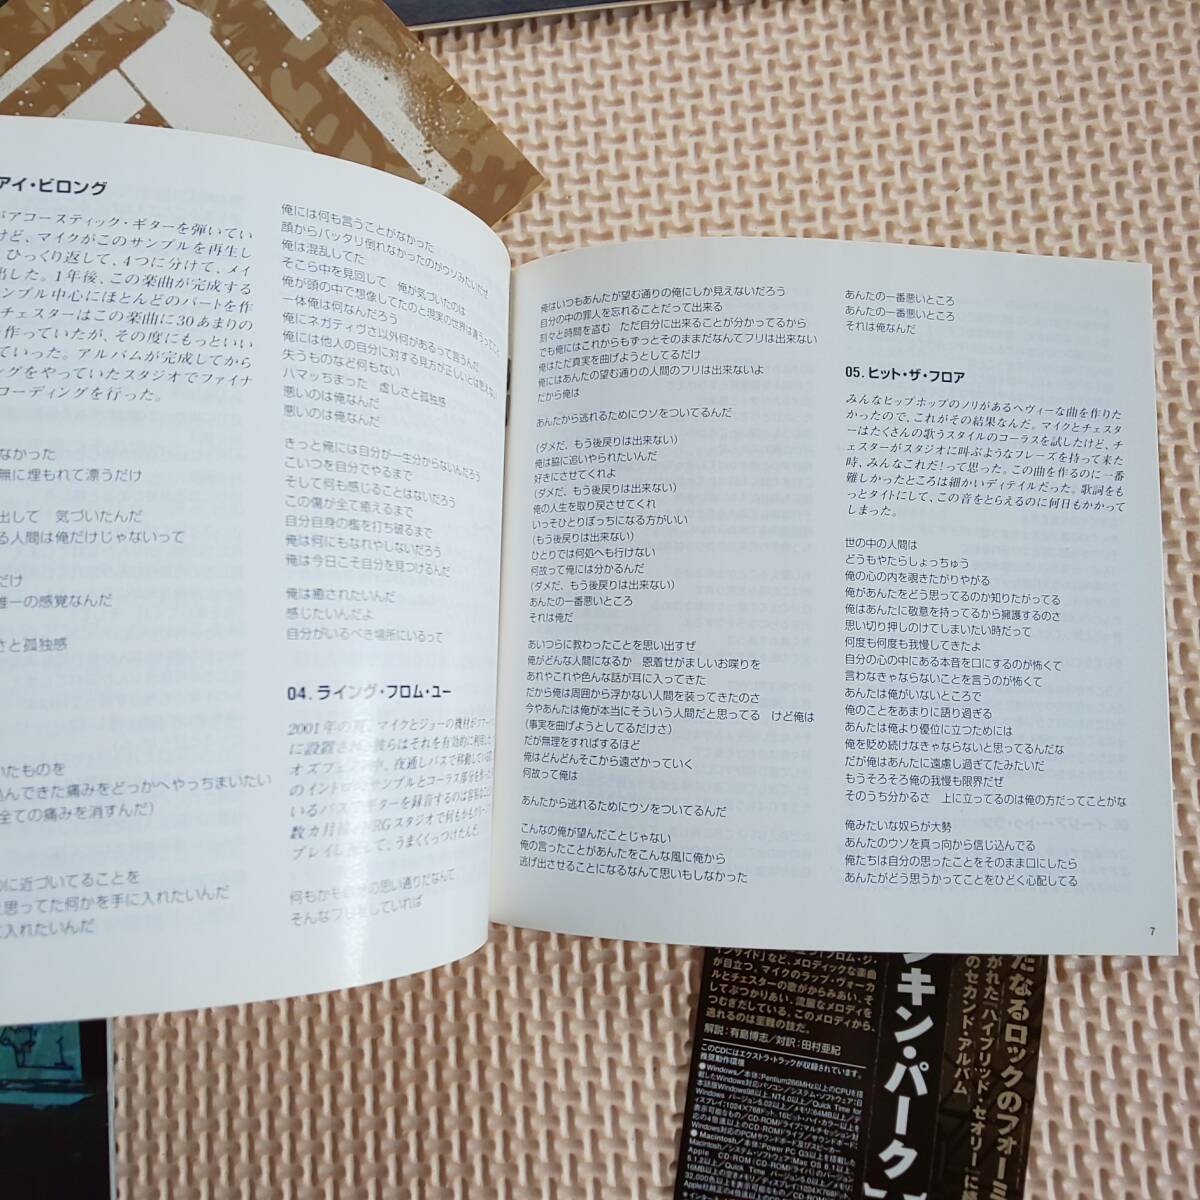 アイ・ビロング
がアコースティック・ギターを弾いてい
けど、マイクがこのサンプルを再生し
、ひっくり返して、4つに分けて、メイ
出した。1年後、この楽曲が完成する
ンプル中心にほとんどのパートを作
チェスターはこの楽曲に30あまりの
作っていたが、その度にもっといい
ていった。アルバムが完成してから
ングをやっていたスタジオでファイナ
コーディングを行った。
なかった
無に埋もれて漂うだけ
出して 気づいたんだ
る人間は俺だけじゃないって
だけ
唯一の感覚なんだ
さと孤独感
いたものを
込んできた痛みをどっかへやっちまいたい
全ての痛みを消すんだ)
に近づいてることを
と思ってた何かを手に入れたいんだ
に入れたいんだ
俺には何も言うことがなかった
顔からバッタリ倒れなかったのがウソみたいだぜ
俺は混乱してた
そこら中を見回して 俺が気づいたのは
俺が頭の中で想像してたのと現実の世界は違うってこと
一体俺は何なんだろう
俺にネガティヴさ以外何があるって言うんだ
俺には他人の自分に対する見方が正しいとは思えない
失うものなど何もない
ハマッちまった 虚しさと孤独感
悪いのは俺なんだ
悪いのは俺なんだ
きっと俺には自分が一生分からないんだろう
こいつを自分でやるまで
そして何も感じることはないだろう
この傷が全て癒えるまで
自分自身の檻を打ち破るまで
俺は何にもなれやしないだろう
俺は今日こそ自分を見つけるんだ
俺は癒されたいんだ
感じたいんだよ
自分がいるべき場所にいるって
04. ライング・フロム・ユー
2001年の夏、マイクとジョーの機材がツアー
に設置され、彼らはそれを有効的に利用した
オズフェスト中、夜通しバスで移動している
のイントロのサンプルとコーラス部分を
いるバスでギターを録音するのは
数カ月後、NRGスタジオで何もかも
プレイし直して、うまくくっつけたんだ。
何もかも自分の思い通りだなんて
そんなフリをしていれば
俺はいつもあんたが望む通りの俺にしか見えないだろう
自分の中の罪人を忘れることだって出来る
刻々と時間を盗む ただ自分に出来ることが分かってるから
でも俺にはこれからもずっとそのままだなんてフリは出来ない
俺はただ真実を曲げようとしてるだけ
俺にはあんたの望む通りの人間のフリは出来ないよ
だから俺は
あんたから逃れるためにウソをついてるんだ
(ダメだ、もう後戻りは出来ない)
俺は脇に追いやられたいんだ
好きにさせてくれよ
(ダメだ、もう後戻りは出来ない)
俺の人生を取り戻させてくれ
いっそひとりぼっちになる方がいい
(もう後戻りは出来ない)
ひとりでは何処へも行けない
何故って俺には分かるんだ
(ダメだ、もう後戻りは出来ない)
あんたの一番悪いところ
それは俺だ
あいつらに教わったことを思い出すぜ
俺がどんな人間になるか 恩着せがましいお喋りを
あれやこれや色んな話が耳に入ってきた
だから俺は周囲から浮かない人間を装ってきたのさ
今やあんたは俺が本当にそういう人間だと思ってる けど俺は
(事実を曲げようとしてるだけさ)
だが無理をすればするほど
俺はどんどんそこから遠ざかっていく
何故って俺は
あんたから逃れるためにウソをついてるんだ
こんなの俺が望んだことじゃない
俺の言ったことがあんたをこんな風に俺から
逃げ出させることになるなんて思いもしなかった
あんたの一番悪いところ
あんたの一番悪いところ
それは俺なんだ
05. ヒット・ザ・フロア
みんなヒップホップのノリがあるヘヴィーな曲を作りた
かったので、これがその結果なんだ。マイクとチェスタ
ーはたくさんの歌うスタイルのコーラスを試したけど、チ
ェスターがスタジオに叫ぶようなフレーズを持って来た
時、みんなこれだ!って思った。この曲を作るのに一番
難しかったところは細かいディテイルだった。歌詞をも
っとタイトにして、この音をとらえるのに何日もかかって
しまった。
世の中の人間は
どうもやたらしょっちゅう
俺の心の内を覗きたがりやがる
俺があんたをどう思ってるのか知りたがってる
俺はあんたに敬意を持ってるから擁護するのさ
思い切り押しのけてしまいたい時だって
何度も何度も我慢してきたよ
自分の心の中にある本音を口にするのが怖くて
言わなきゃならないことを言うのが怖くて
あんたは俺がいないところで
俺のことをあまりに語り過ぎる
あんたは俺より優位に立つためには
俺を貶め続けなきゃならないと思ってるんだな
だが俺はあんたに遠慮し過ぎてたみたいだ
もうそろそろ俺の我慢も限界だぜ
そのうち分かるさ 上に立ってるのは俺の方だってことがな
俺みたいな奴らが大勢
あんたのウソを真っ向から信じ込んでる
俺たちは自分の思ったことをそのまま口にしたら
あんたがどう思うかってことをひどく心配してる
7
インサイド」など、メロディックな楽曲
が目立つ。マイクのラップ・ヴォーカ
ルとチェスターの歌がからみあい、そ
してぶつかりあい、流麗なメロディを
つむぎだしている。このメロディから、
逃れるのは至難の技だ。
解説:有島博志/対訳:田村亜紀
このCDにはエクストラ・トラックが収録されています。
推奨動作環境
キン・パーク
たなるロックのフォーミ
がれた「ハイブリッド・セオリー」に
のセカンド・アルバム